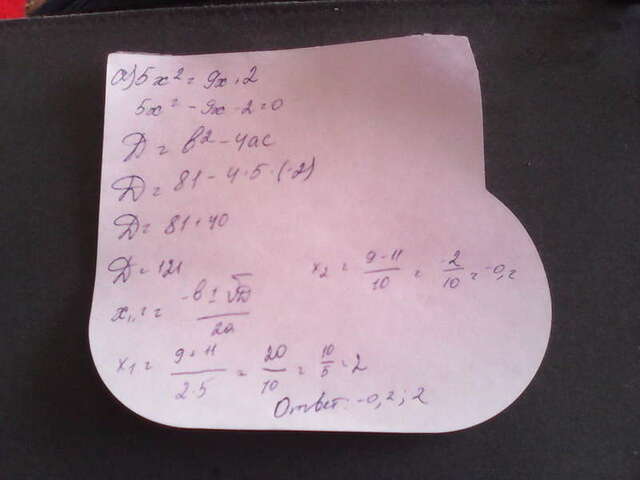 а) 5x² = 9x + 2
5x² - 9x - 2 = 0
D = b² - 4ac
D = 81 - 4·5·(-2)
D = 81 + 40
D = 121
x₁,₂ = (-b ± √D)/2a
x₂ = (9 - 11)/10 = -2/10 = -0,2
x₁ = (9 + 11)/(2·5) = 20/10 = 10/5 = 2
Ответ: -0,2; 2